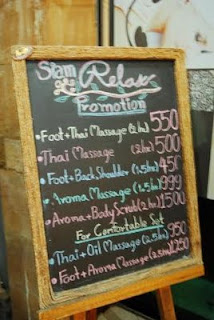 Siam Relax
Promotion
• Foot + Thai Massage (2 hr) 550
• Thai Massage (2hr) 500
• Foot + Back Shoulder (1.5 hr) 450
• Aroma Massage (1.5hr) 999
• Aroma + Body Scrub (2hr) 1500
For Comfortable Set
• Thai + Oil Massage (2.5hr) 950
• Foot + Aroma Massage (2.5hr) 1250